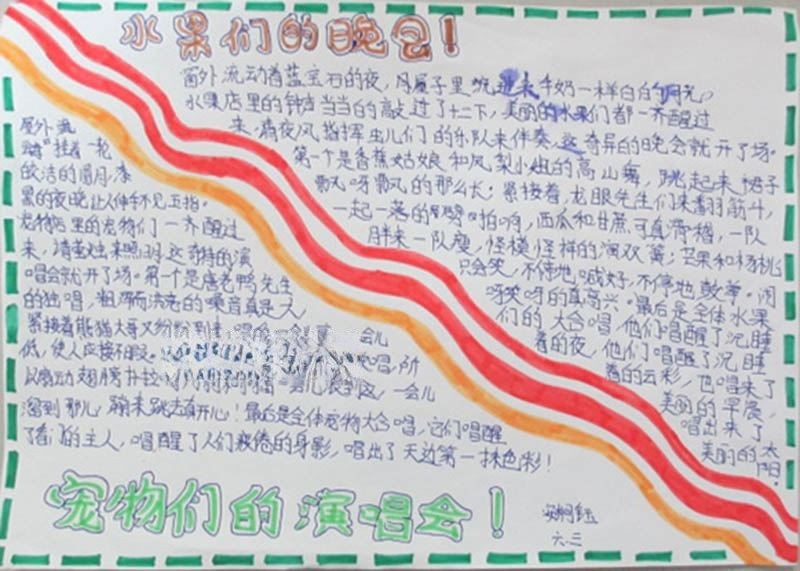 水果们的晚会！
窗外流动着蓝宝石的夜，月屋子里流进来牛奶一样白白的月光。
水果店里的钟声当当的敲过了十二下，美丽的水果们都一齐醒过
来，请夜风指挥虫儿们的乐队来伴奏，这奇异的晚会就开了场。
第一个是香蕉姑娘和凤梨小姐的高山舞，跳起来裙子
飘呀飘的那么长；紧接着，龙眼先生们来翻筋斗，
一起一落的劈啪响，西瓜和甘蔗可真滑稽，一队
胖来一队瘦，怪模怪样的演双簧；芒果和杨桃
只会笑，不停地喊好，不停地鼓掌。闹
呀笑呀的真高兴。最后是全体水果
们的大合唱，他们唱醒了沉睡
着的夜，他们唱醒了沉睡
着的云彩，也唱来了
美丽的早晨，
唱出来了
美丽的太
阳。
屋外流
动着一轮
皎洁的明月，漆
黑的夜晚让人伸手不见五指。
宠物店里的宠物们一齐醒过
来，请萤火虫来照明，这奇特的演
唱会就开了场。第一个是唐老鸭先生
的独唱，粗环而洪亮的嗓音真是大
紧接着熊猫大哥又纷纷到来，唱的 会儿高 会儿
低，使人应接不暇。 唱，所
以扇动翅膀扑拉 会儿 到这，一会儿
溜到那儿，蹦来跳去有开心！最后是全体宠物大合唱，它们唱醒
了看门的主人，唱醒了人们疲倦的身影，唱出了天边第一抹色彩！
宠物们的演唱会！
六.三